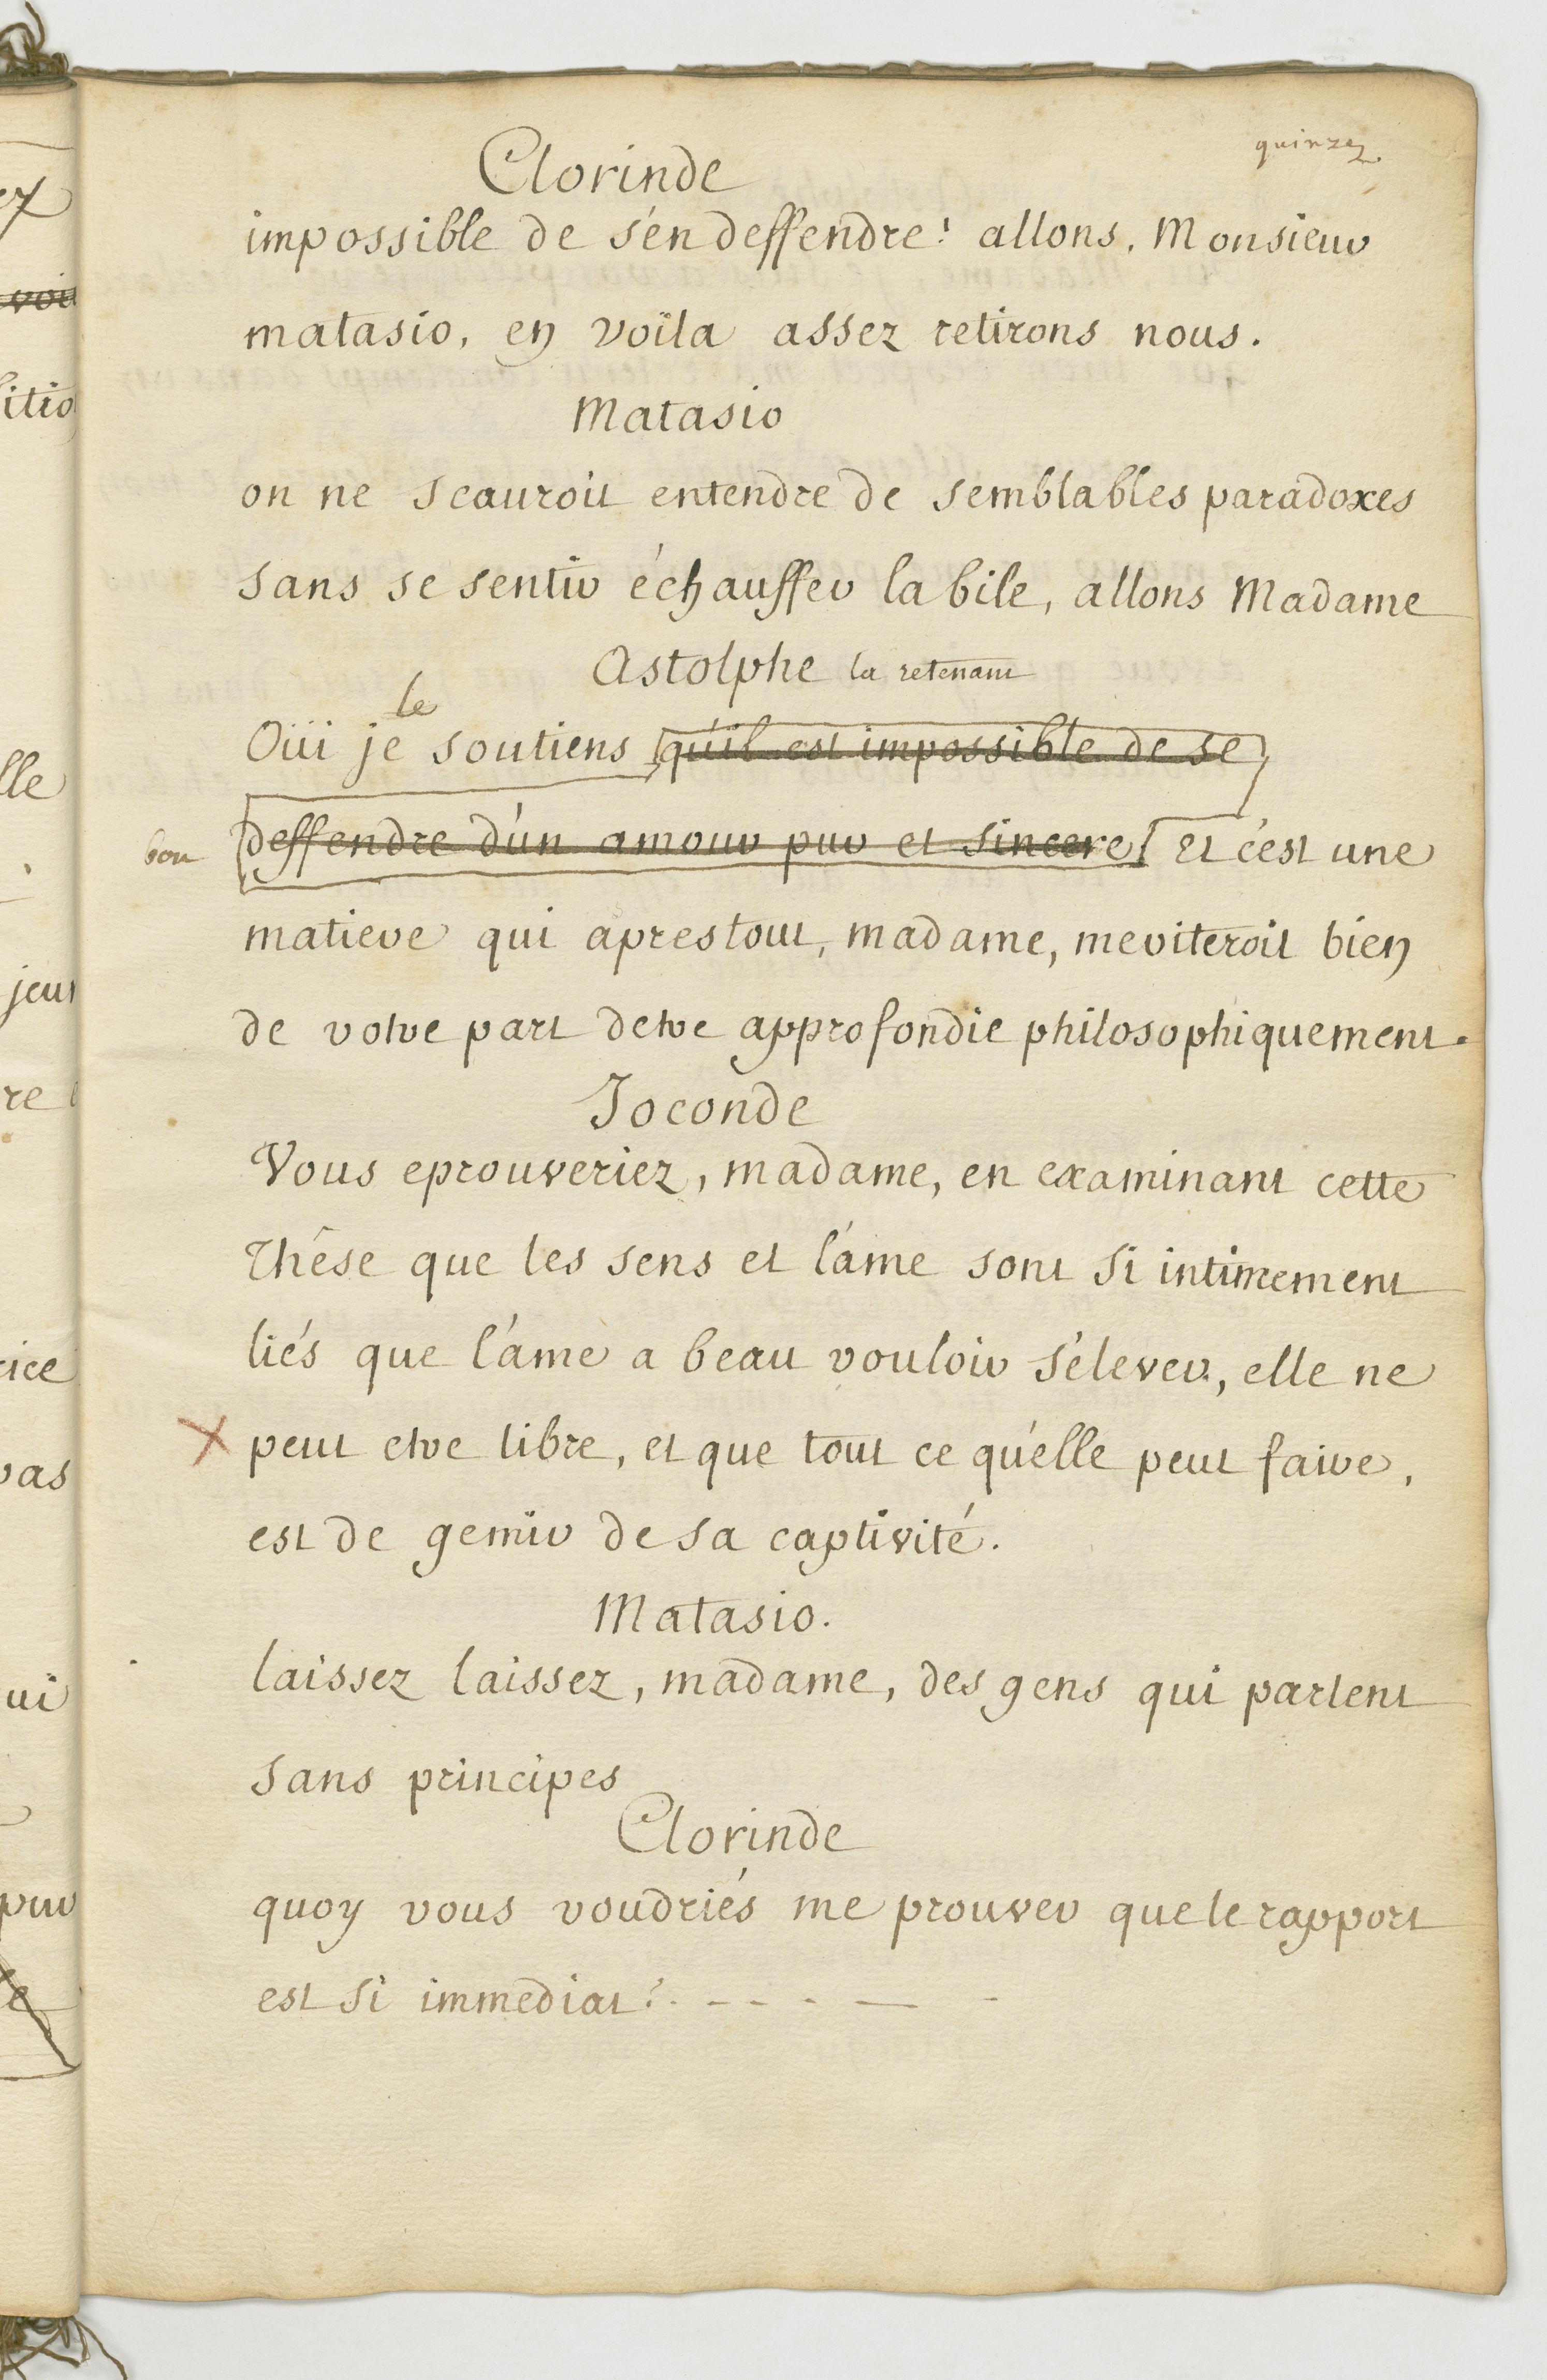 quinze
Clorinde
impossible de s'en deffendre! allons, Monsieur
matasio, en voila assez retirons nous.
Matasio
on ne scauroit entendre de semblables paradoxes
sans se sentir échauffer la bile, allons Madame
Astolphe la retenant
le
Oüi je soutiens qu'il est impossible de se
bon deffendre d'un amour pur et sincere et c'est une
matiere qui aprestout, madame, meriteroit bien
de votre part detre approfondie philosophiquement.
Joconde
Vous eprouveriez, madame, en examinant cette
Thése que les sens et l'ame sont si intimement
liés que l'ame a beau vouloir s'élever, elle ne
peut etre libre, et que tout ce qu'elle peut faire,
est de gemir de sa captivité.
Matasio.
laissez laissez, madame, des gens qui parlent
sans principes
Clorinde
quoy vous voudriés me prouver que le rapport
est si immediat?